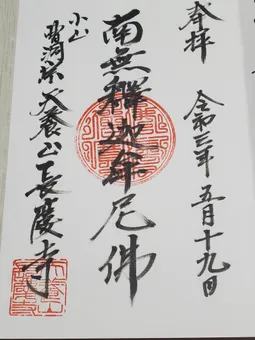 奉拝
令和三年五月十九日
南無釋迦牟尼佛
小山
曹洞宗 養山長陵寺